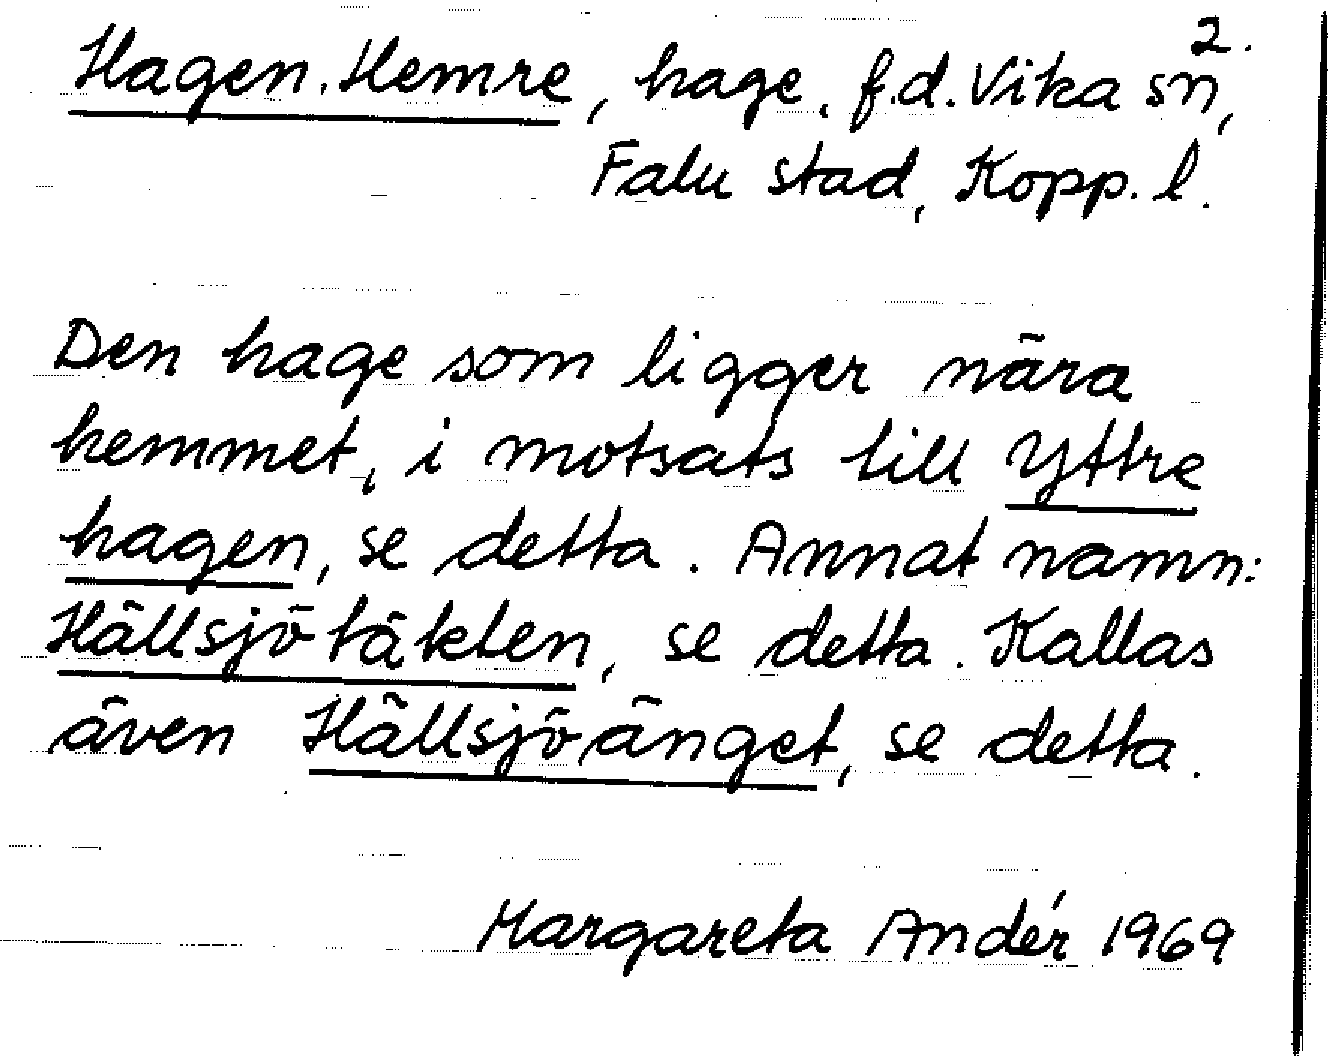 2.
Hagen. Hemre, hage. f.d. Vika sn,
Falu stad, Kopp. l.
Den hage som ligger nära
hemmet, i motsats till Yttre
hagen, se detta. Annat namn:
Hällsjötäkten, se detta. Kallas
även Hällsjöänget, se detta.
Margareta Andér 1969